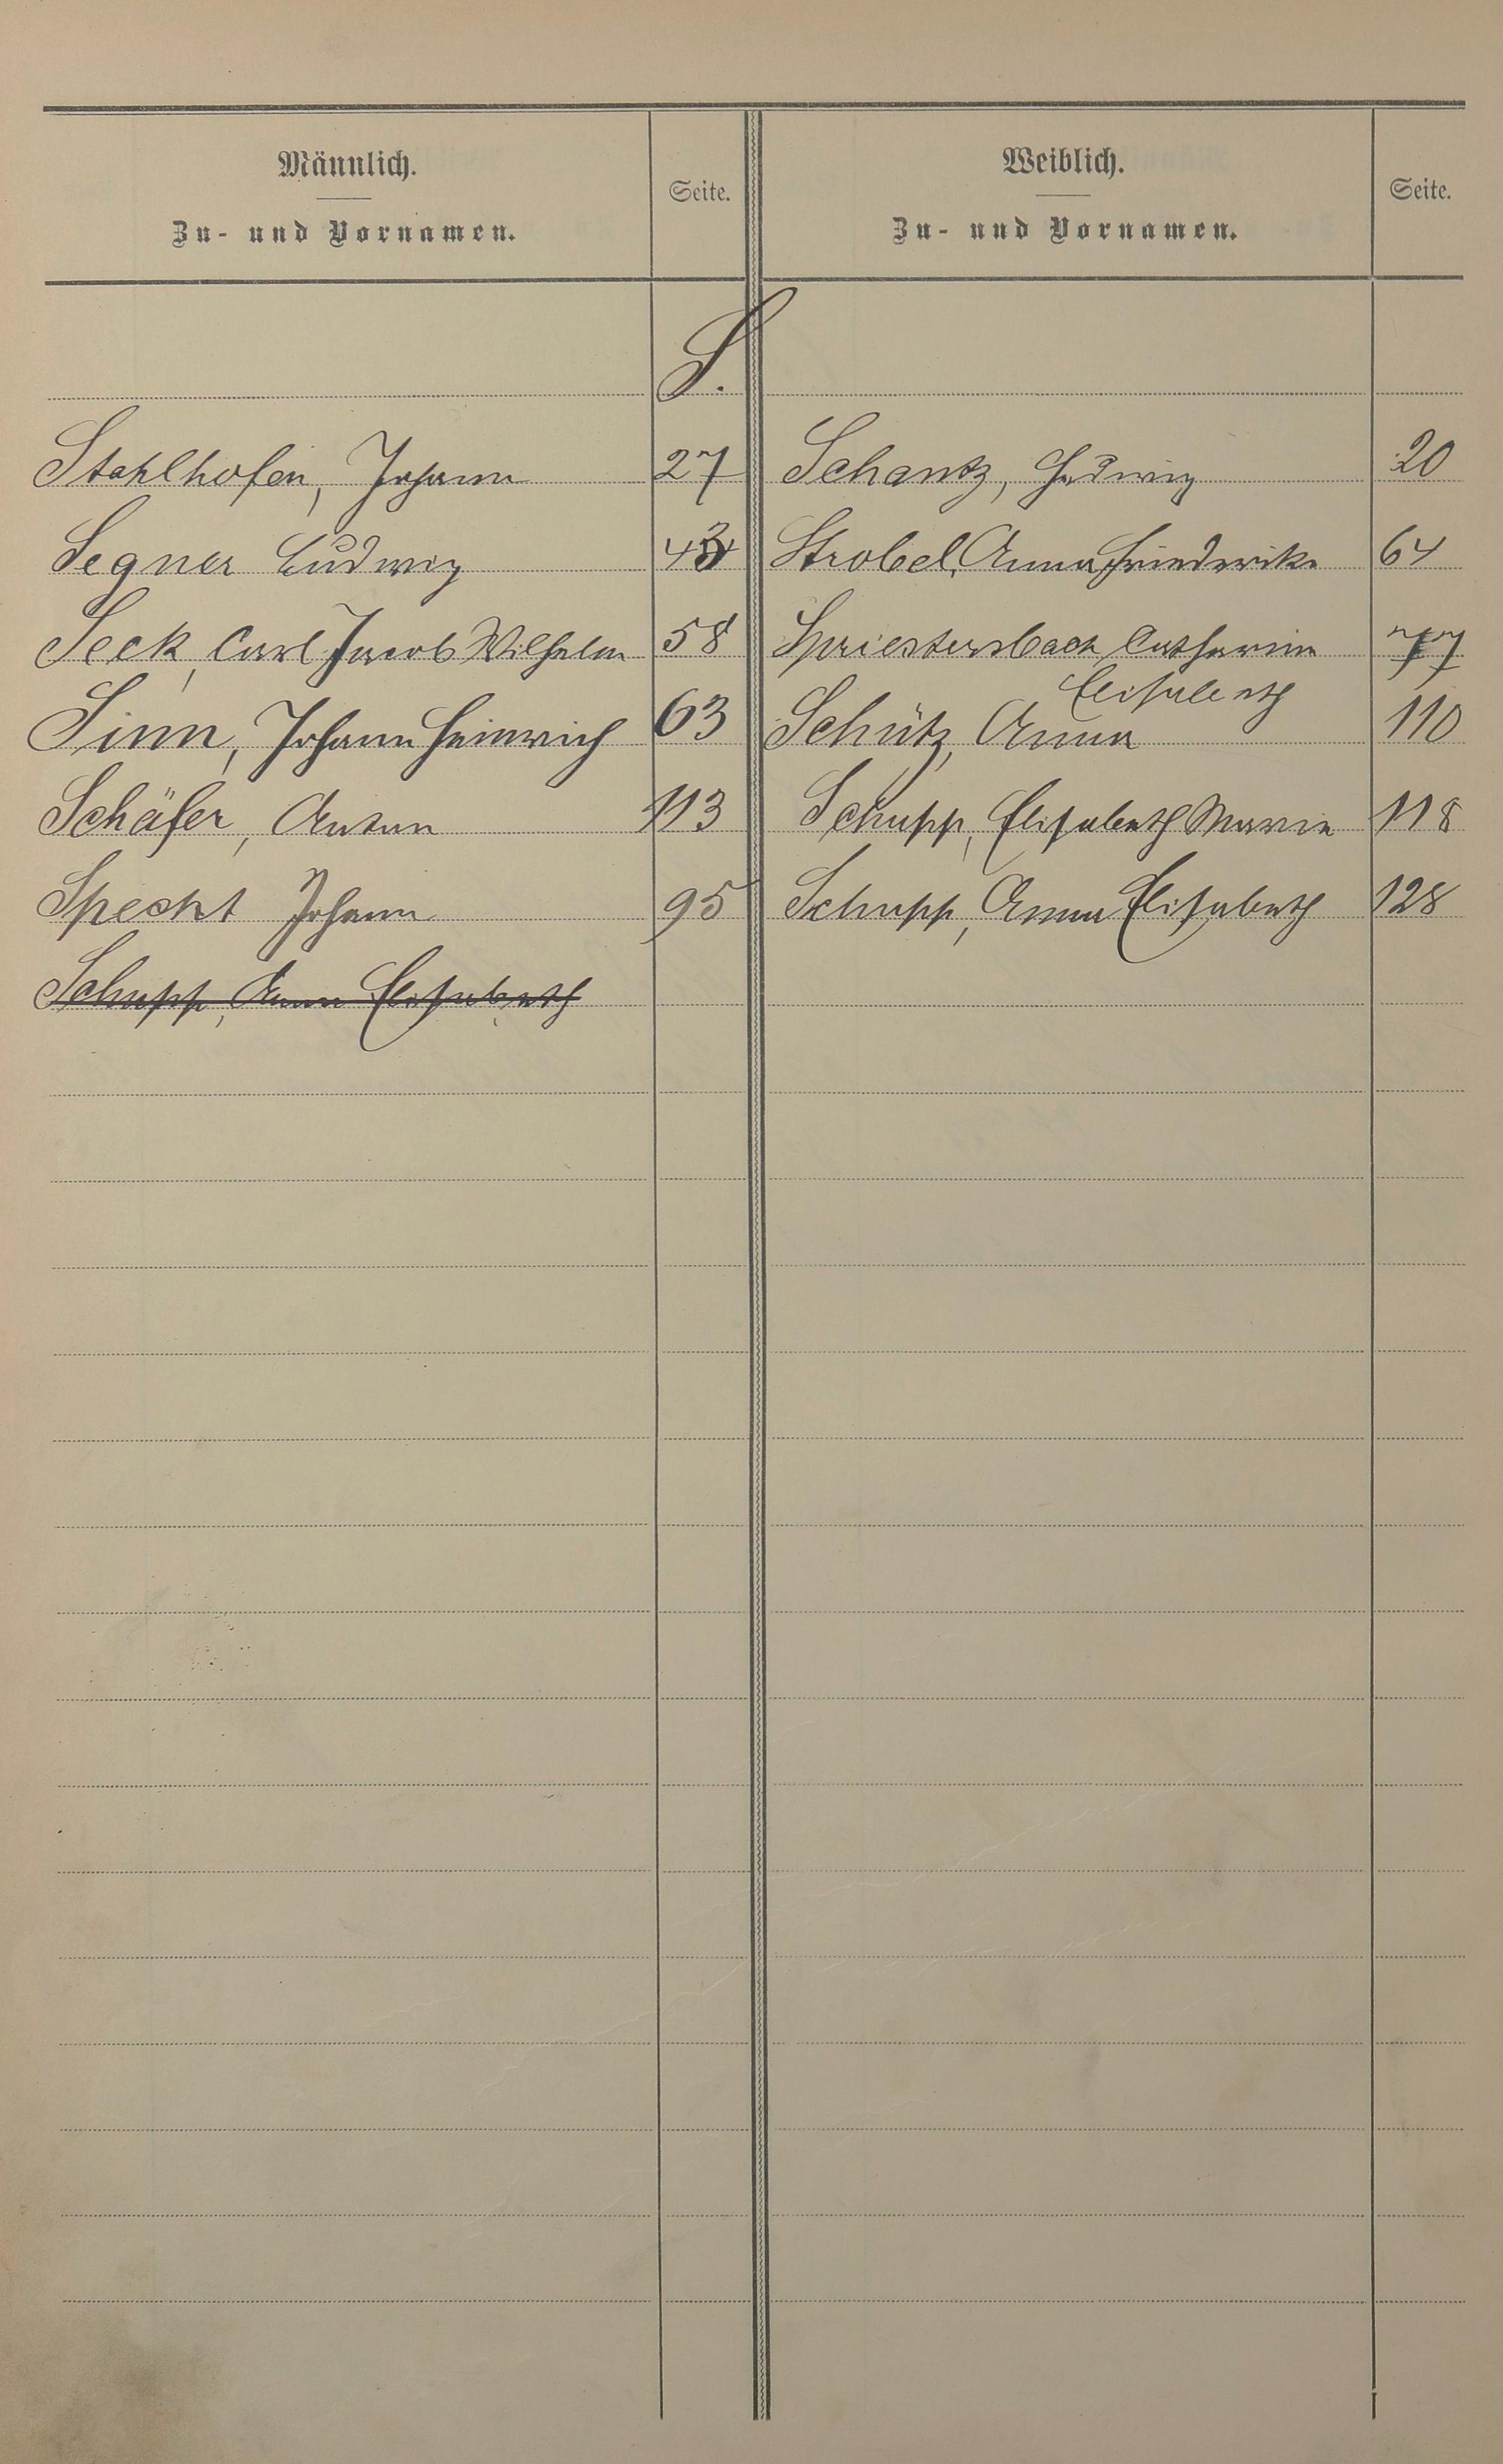 Männlich.
Zu- und Vornamen.
Seite.
Weiblich.
Zu- und Vornamen.
Seite.
S.
Stahlhofen, Johann 27 Schantz, Hedwig 20
Segner Ludwig 43 Strobel, Anna Friederike 64
Seck, Carl Jacob Wilhelm 58 Spriestersbach Catharina 77
Elisabeth
Sinn, Johann Heinrich 63 Schütz, Anna 110
Schäfer, Anton 113 Schupp, Elisabeth Maria 118
Specht Johann 95 Schupp, Anna Elisabeth 128
Schupp, Anna Elisabeth